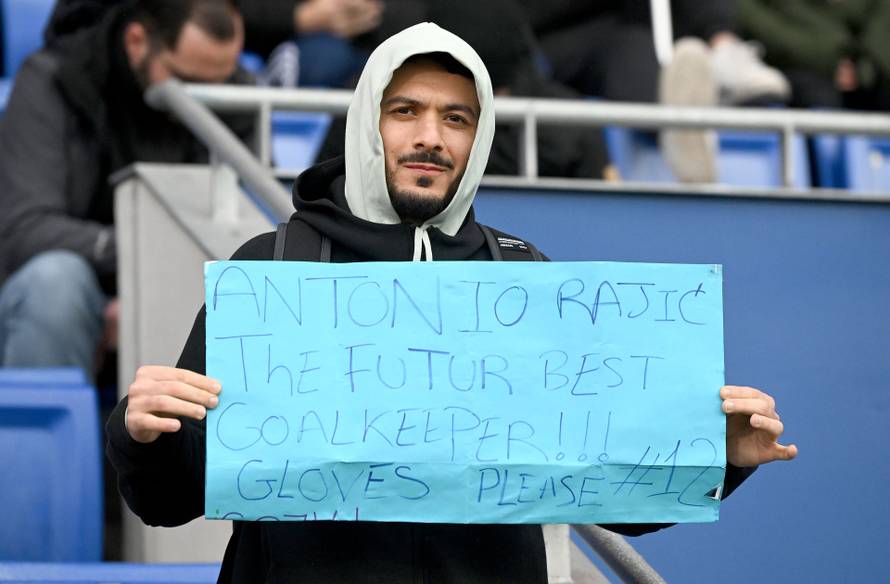 ANTONIO RAJIĆ
The FUTUR BEST
GOALKEEPER!!!
GLOVES PLEASE #12